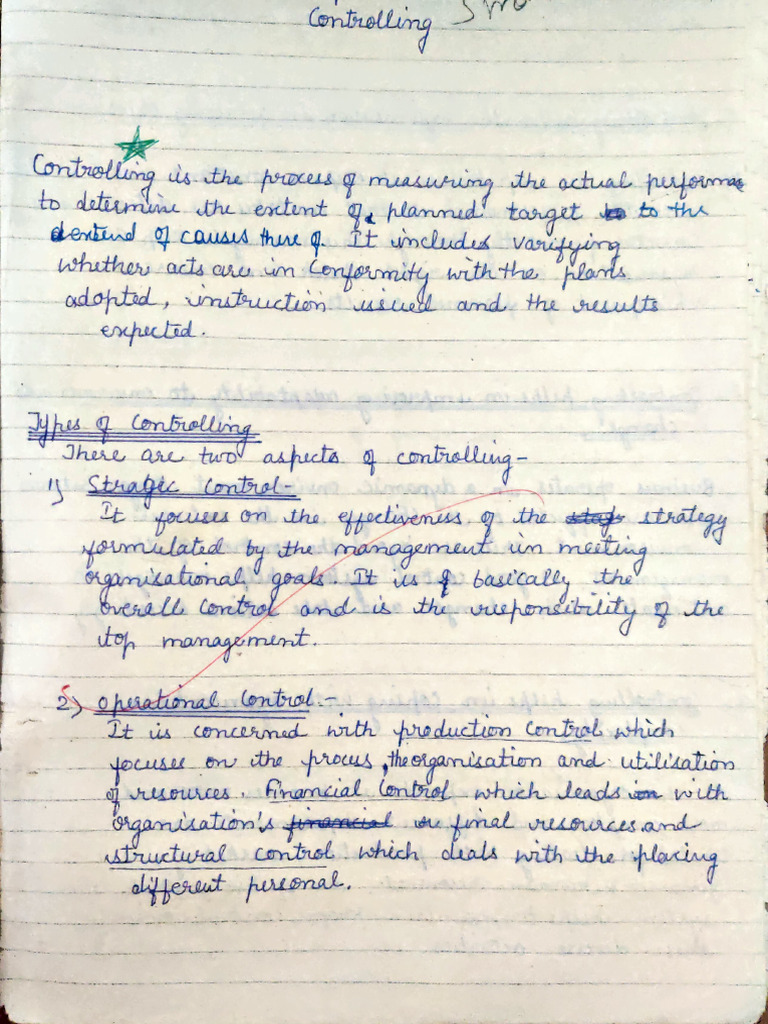 Controlling
Controlling is the process of measuring the actual performance
to determine the extent of planned target to the
extend of causes there of. It includes varifying
whether acts are in Conformity with the plans
adopted, instruction issued and the results
expected.
Types of Controlling
There are two aspects of controlling-
1) Stragic Control-
It focuses on the effectiveness of the strategy
formulated by the management in meeting
organisational goals. It is basically the
overall control and is the responsibility of the
top management.
2) Operational Control-
It is concerned with production control which
focuses on the process, the organisation and utilisation
of resources. Financial Control which leads with
organisation's final resources and
structural control which deals with the placing
different personal.